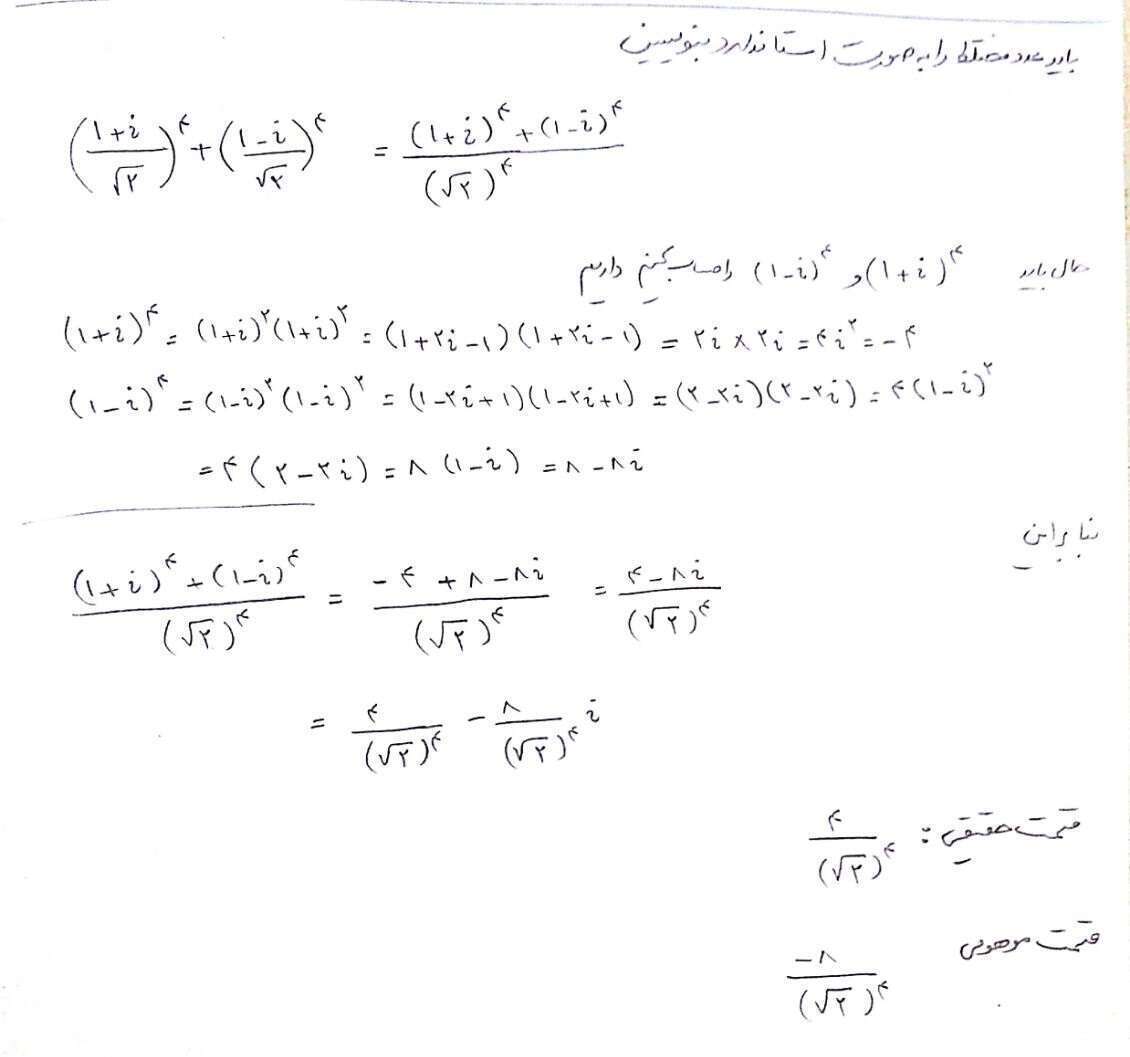 باید عدد مختلط را به صورت استاندارد بنویسیم
(۱+i/√۲)^۴ + (۱-i/√۲)^۴ = (۱+i)^۴+(۱-i)^۴ / (√۲)^۴
حال باید (۱+i)^۴ و (۱-i)^۴ را حساب کنیم داریم
(۱+i)^۴ = (۱+i)^۲(۱+i)^۲ = (۱+۲i-۱)(۱+۲i-۱) = ۲i × ۲i = ۴i^۲ = -۴
(۱-i)^۴ = (۱-i)^۲(۱-i)^۲ = (۱-۲i+۱)(۱-۲i+۱) = (۲-۲i)(۲-۲i) = ۴(۱-i)^۲
= ۴(۲-۲i) = ۸(۱-i) = ۸-۸i
بنابراین
(۱+i)^۴+(۱-i)^۴ / (√۲)^۴ = -۴+۸-۸i / (√۲)^۴ = ۴-۸i / (√۲)^۴
= ۴/(√۲)^۴ - ۸/(√۲)^۴ i
قسمت حقیقی : ۴/(√۲)^۴
قسمت موهومی -۸/(√۲)^۴